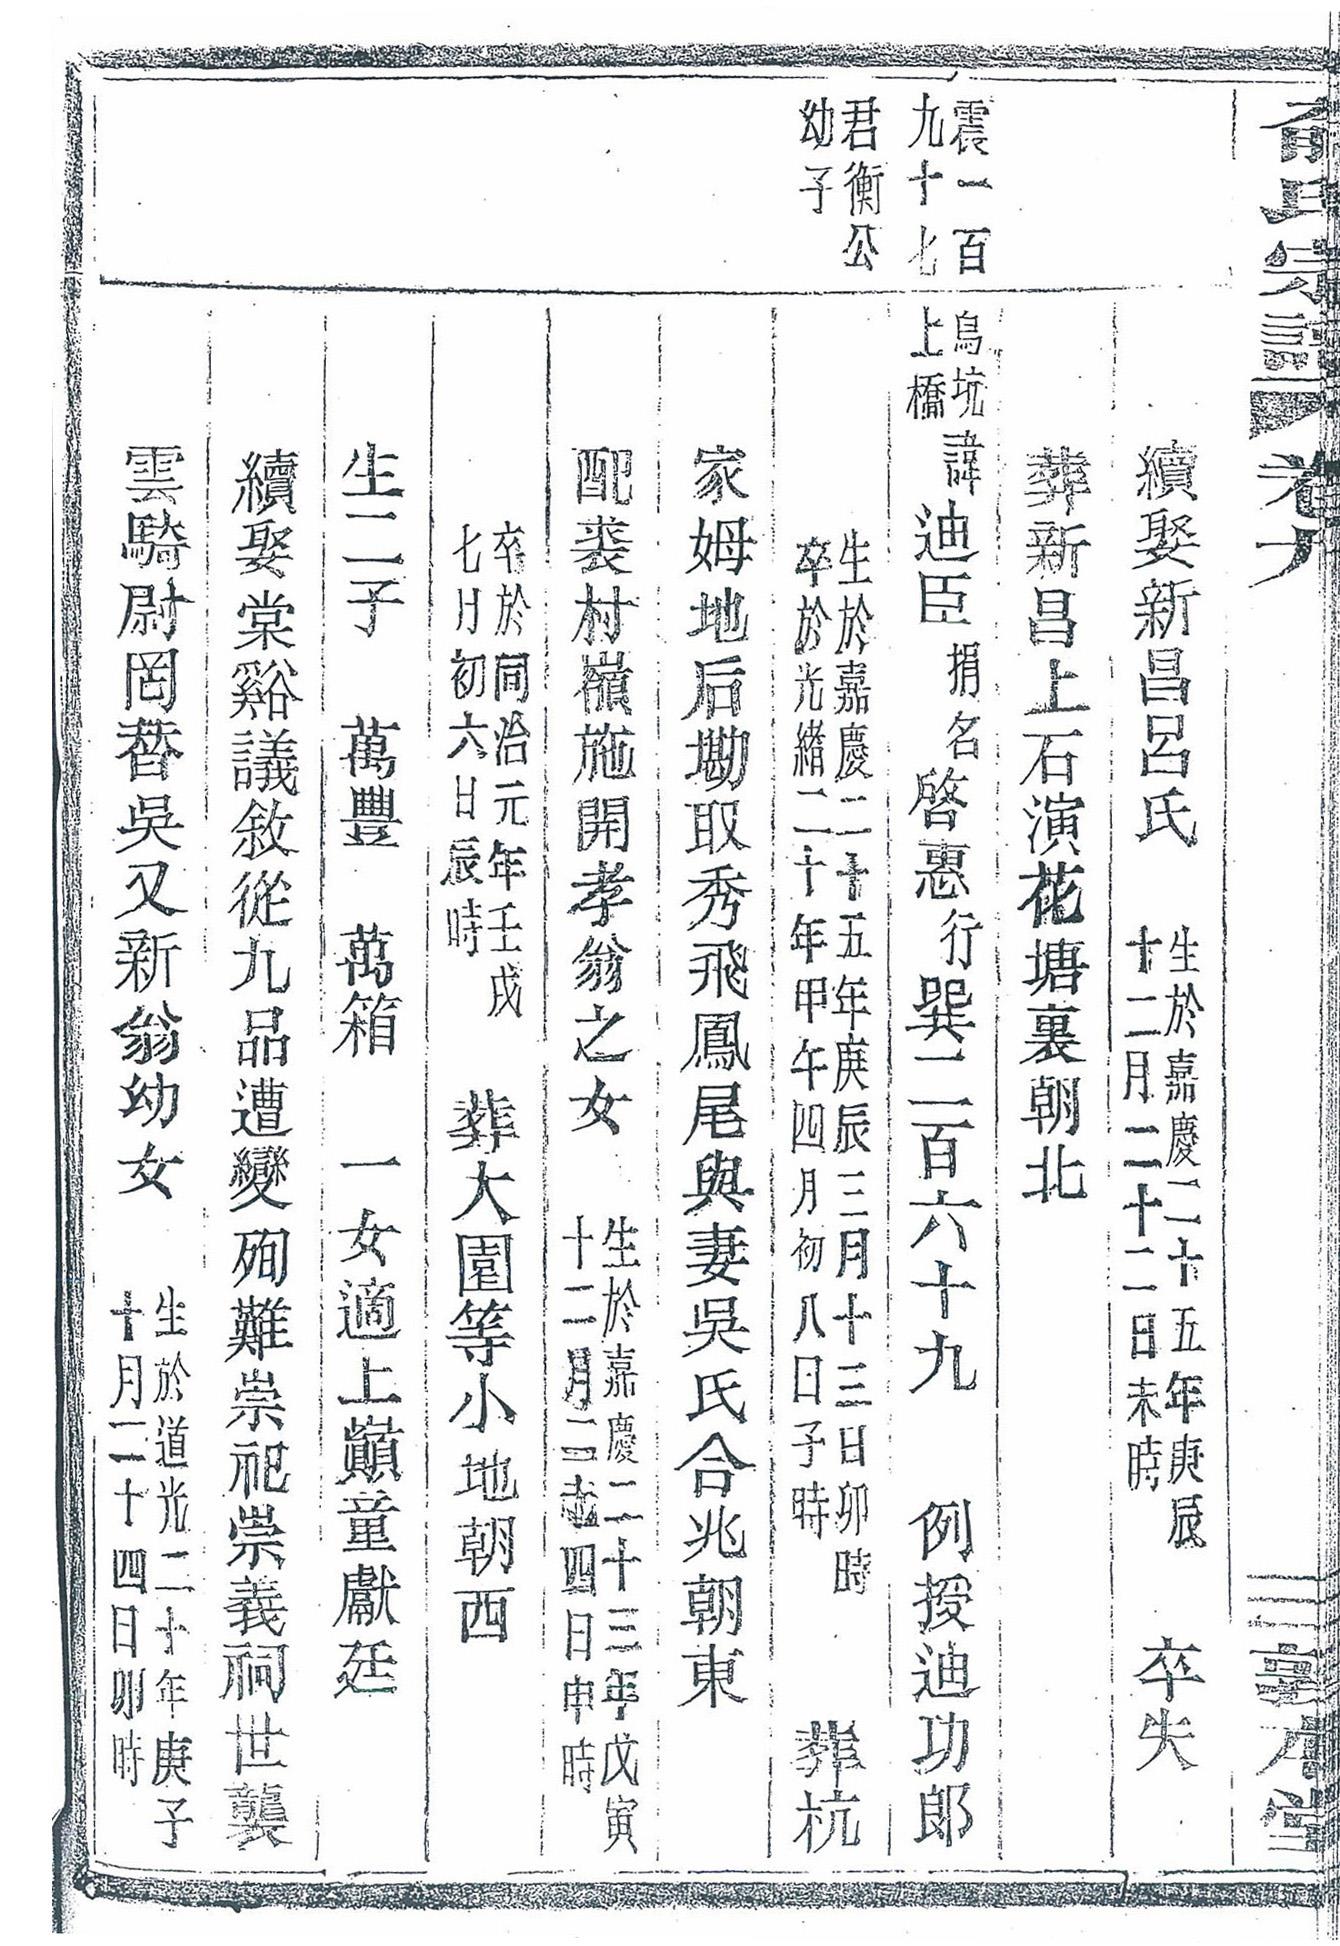 俞氏宗譜 卷九 敦本堂
續娶新昌呂氏 生於嘉慶二十五年庚辰十二月二十二日未時 卒失
葬新昌上石演花塘裏朝北
震一百九十七
烏坑上橋 諱迪臣 捐名啓惠 行巽二百六十九 例授迪功郎
君衡公幼子
生於嘉慶二十五年庚辰三月十三日卯時
卒於光緒二十年甲午四月初八日子時 葬杭
家姆地后墈取秀飛鳳尾與妻吳氏合兆朝東
配裘村嶺施開孝翁之女 生於嘉慶二十三年戊寅十二月二十四日申時
卒於同治元年壬戌七月初六日辰時 葬大園等小地朝西
生二子 萬豐 萬箱 一女適上巔童獻廷
續娶棠谿議敘從九品遭變殉難崇祀崇義祠世襲
雲騎尉罔替吳又新翁幼女 生於道光二十年庚子十月二十四日卯時